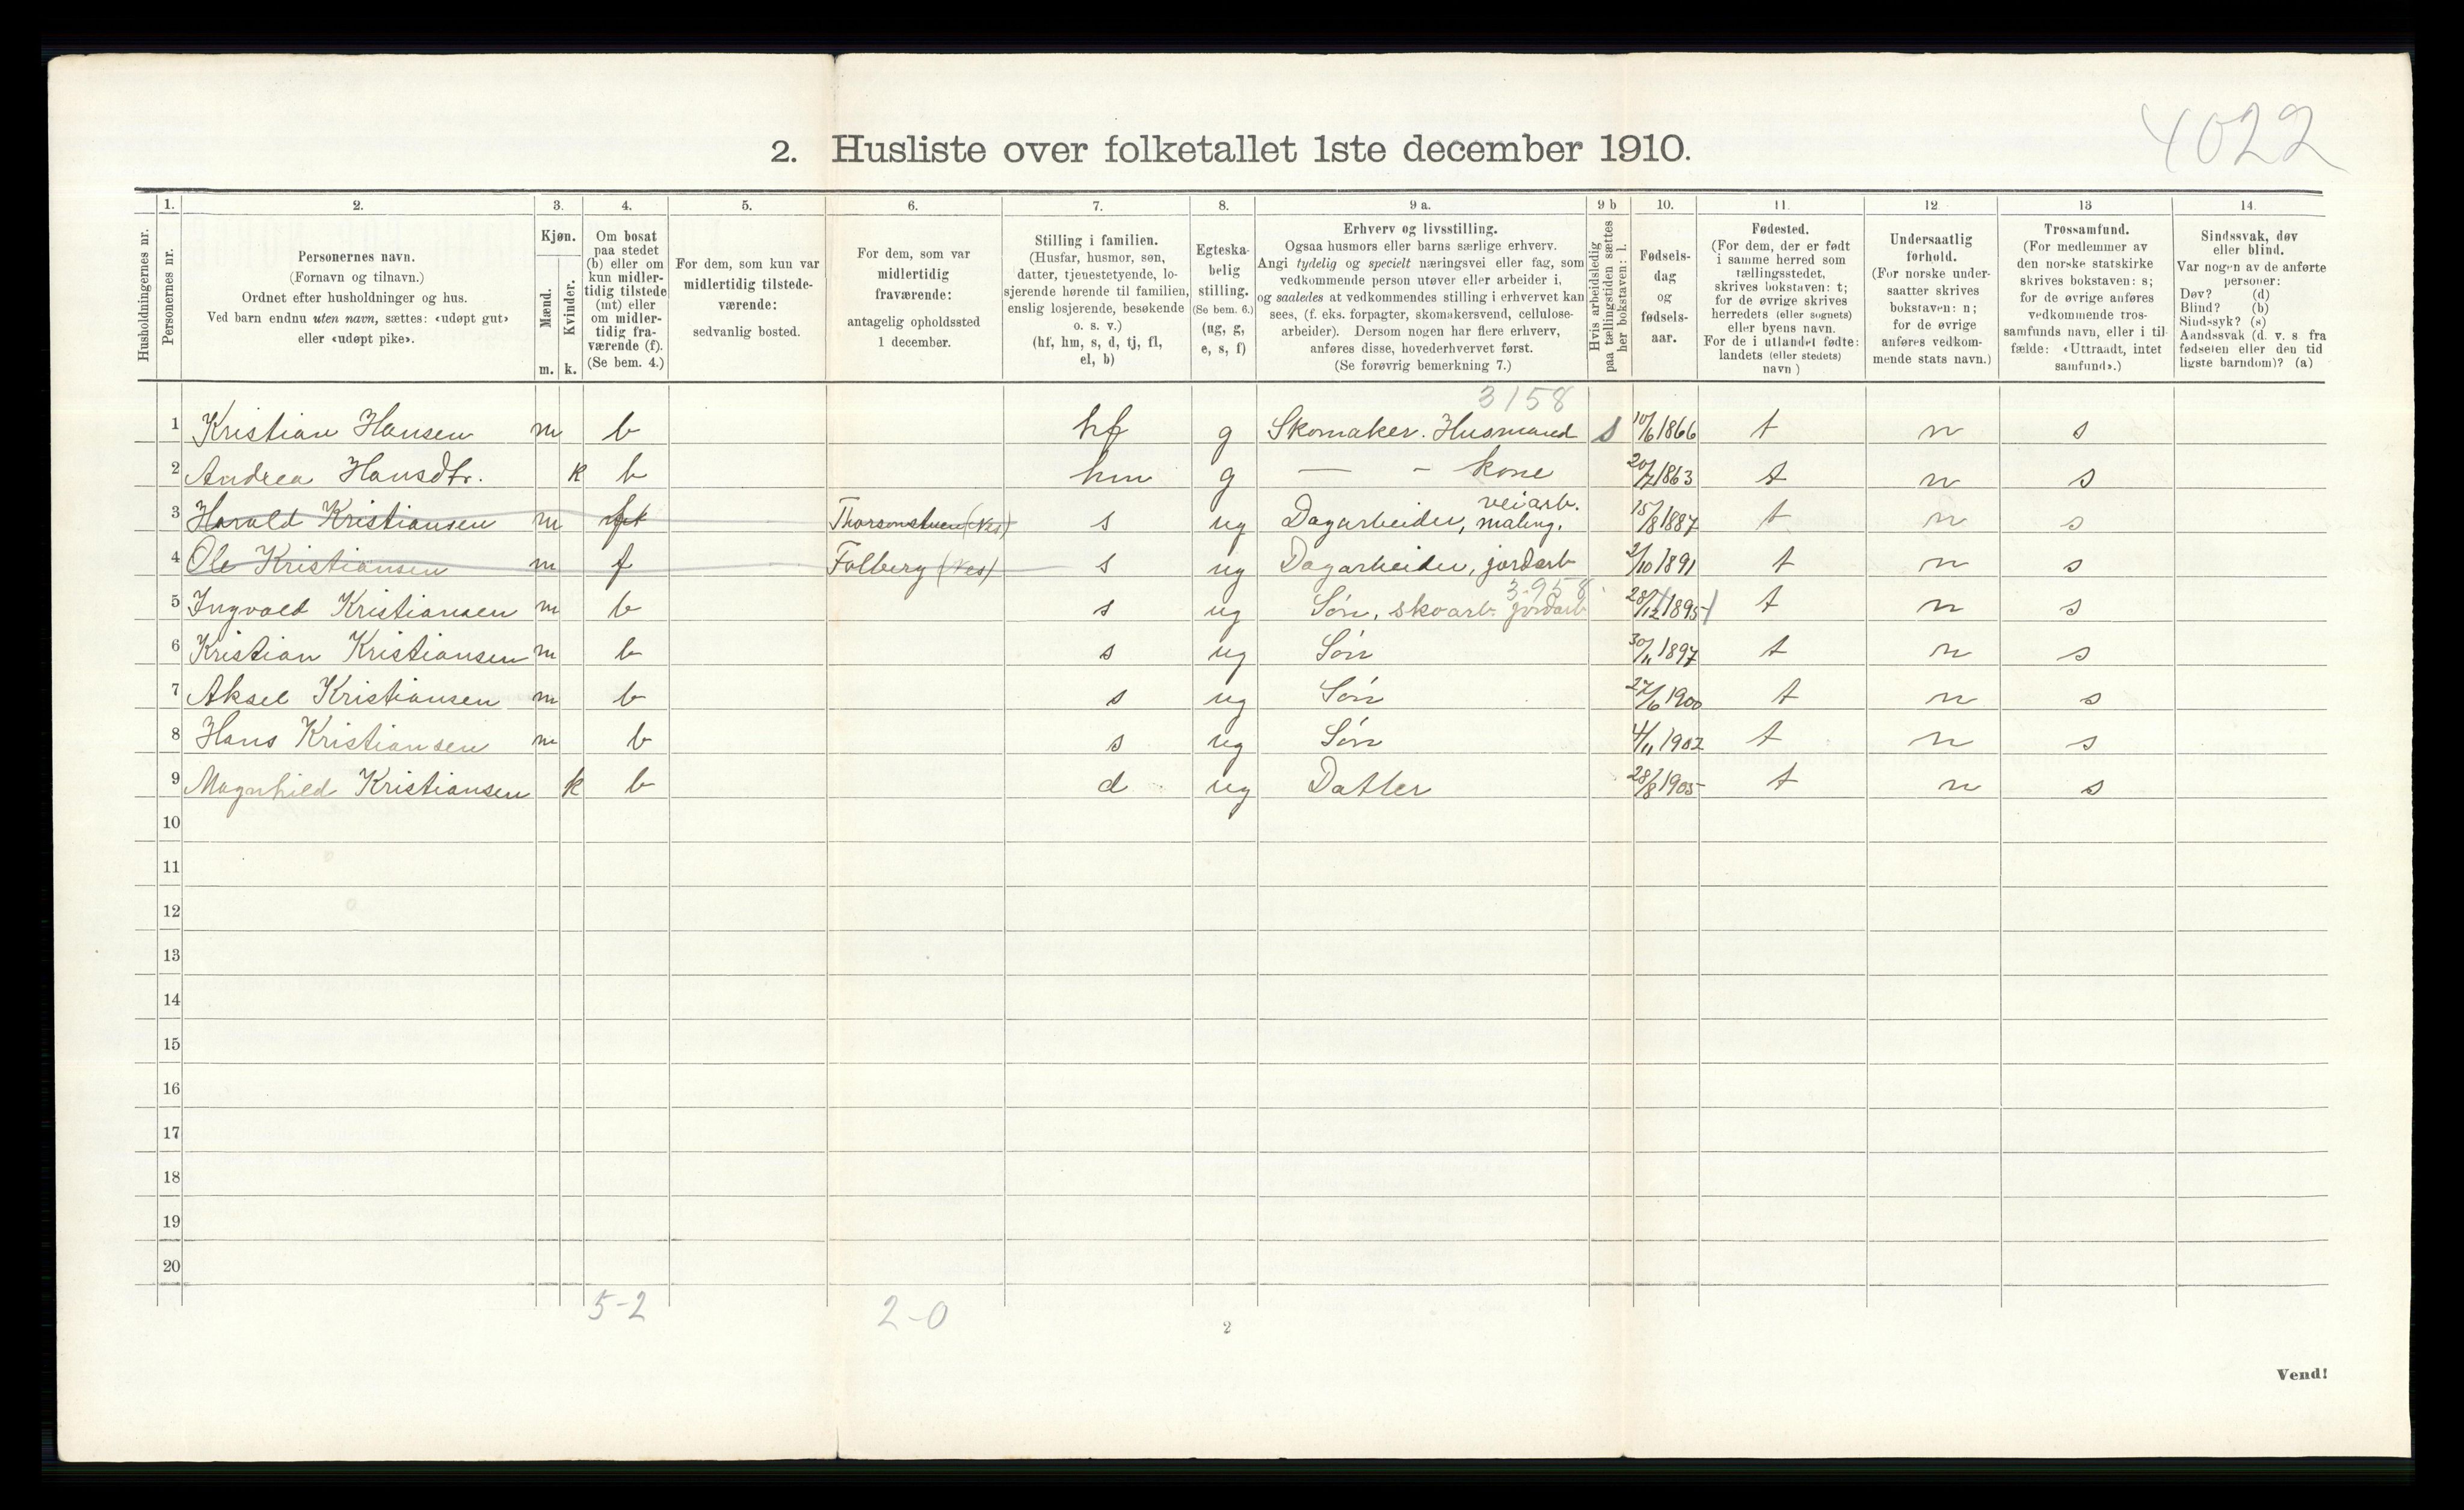 4022
2. Husliste over folketallet 1ste december 1910.
Husholdningernes nr.
1.
Personernes nr.
2.
Personernes navn.
(Fornavn og tilnavn.)
Ordnet efter husholdninger og hus.
Ved barn endnu uten navn, sættes: «udøpt gut»
eller «udøpt pike».
3.
Kjøn.
Mænd.
Kvinder.
m. k.
4.
Om bosat
paa stedet
(b) eller om
kun midler-
tidig tilstede
(mt) eller
om midler-
tidig fra-
værende (f).
(Se bem. 4.)
5.
For dem, som kun var
midlertidig tilstede-
værende:
sedvanlig bosted.
6.
For dem, som var
midlertidig
fraværende:
antagelig opholdssted
1 december.
7.
Stilling i familien.
(Husfar, husmor, søn,
datter, tjenestetyende, lo-
sjerende hørende til familien,
enslig losjerende, besøkende
o. s. v.)
(hf, hm, s, d, tj, fl,
el, b)
8.
Egteska-
belig
stilling.
(Se bem. 6.)
(ug, g,
e, s, f)
9 a.
Erhverv og livsstilling.
Ogsaa husmors eller barns særlige erhverv.
Angi tydelig og specielt næringsvei eller fag, som
vedkommende person utøver eller arbeider i,
og saaledes at vedkommendes stilling i erhvervet kan
sees, (f. eks. forpagter, skomakersvend, cellulose-
arbeider). Dersom nogen har flere erhverv,
anføres disse, hovederhvervet først.
(Se forøvrig bemerkning 7.)
9 b
Hvis arbeidsledig
paa tællingstiden sættes
her bokstaven: l.
10.
Fødsels-
dag
og
fødsels-
aar.
11.
Fødested.
(For dem, der er født
i samme herred som
tællingsstedet,
skrives bokstaven: t;
for de øvrige skrives
herredets (eller sognets)
eller byens navn.
For de i utlandet fødte:
landets (eller stedets)
navn)
12.
Undersaatlig
forhold.
(For norske under-
saatter skrives
bokstaven: n;
for de øvrige
anføres vedkom-
mende stats navn.)
13
Trossamfund.
(For medlemmer av
den norske statskirke
skrives bokstaven: s;
for de øvrige anføres
vedkommende tros-
samfunds navn, eller i til
fælde: «Uttraadt, intet
samfund».)
14.
Sindssvak, døv
eller blind.
Var nogen av de anførte
personer:
Døv? (d)
Blind? (b)
Sindssyk? (s)
Aandssvak (d. v. s fra
fødselen eller den tid
ligste barndom)? (a)
3158
1 Kristian Hansen m b hf g Skomaker. Husmand s 10/6 1866 t n s
2 Andrea Hansdtr. k b hm g — - kone 20/7 1863 t n s
veiarb.
3 Harald Kristiansen m (Nes) s ug Dagarbeider, maling. 15/8 1887 t n s
4 Ole Kristiansen m f Folberg (Nes) s ug Dagarbeider, jordarb 2/10 1891 t n s
3-958
5 Ingvald Kristiansen m b s ug Søn, skoarb. jordarb 28/12 1895 t n s
6 Kristian Kristiansen m b s ug Søn 30/11 1897 t n s
7 Aksel Kristiansen m b s ug Søn 27/6 1900 t n s
8 Hans Kristiansen m b s ug Søn 4/11 1902 t n s
9 Magnhild Kristiansen k b d ug Datter 28/8 1905 t n s
10
11
12
13
14
15
16
17
18
19
20
5-2
2-0
2
Vend!